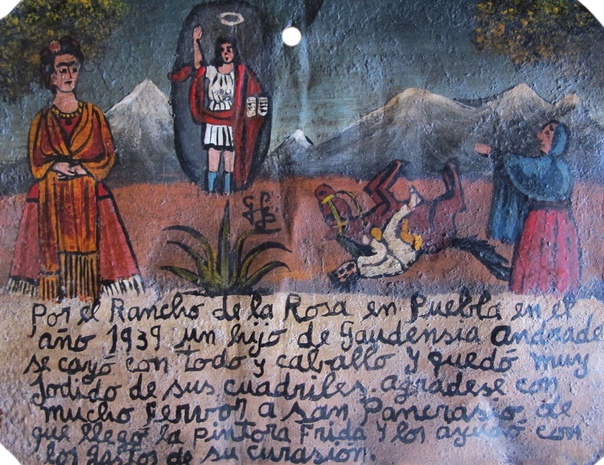 Por el Rancho de la Rosa en Puebla en el
año 1939 un hijo de Gaudensia Andrade
se cayó con todo y caballo y quedó muy
Jodido de sus cuadriles. agradese con
mucho fervor a san Panerasio de
que llegó la pintora Frida y los ayudó con
los gastos de su curasión.